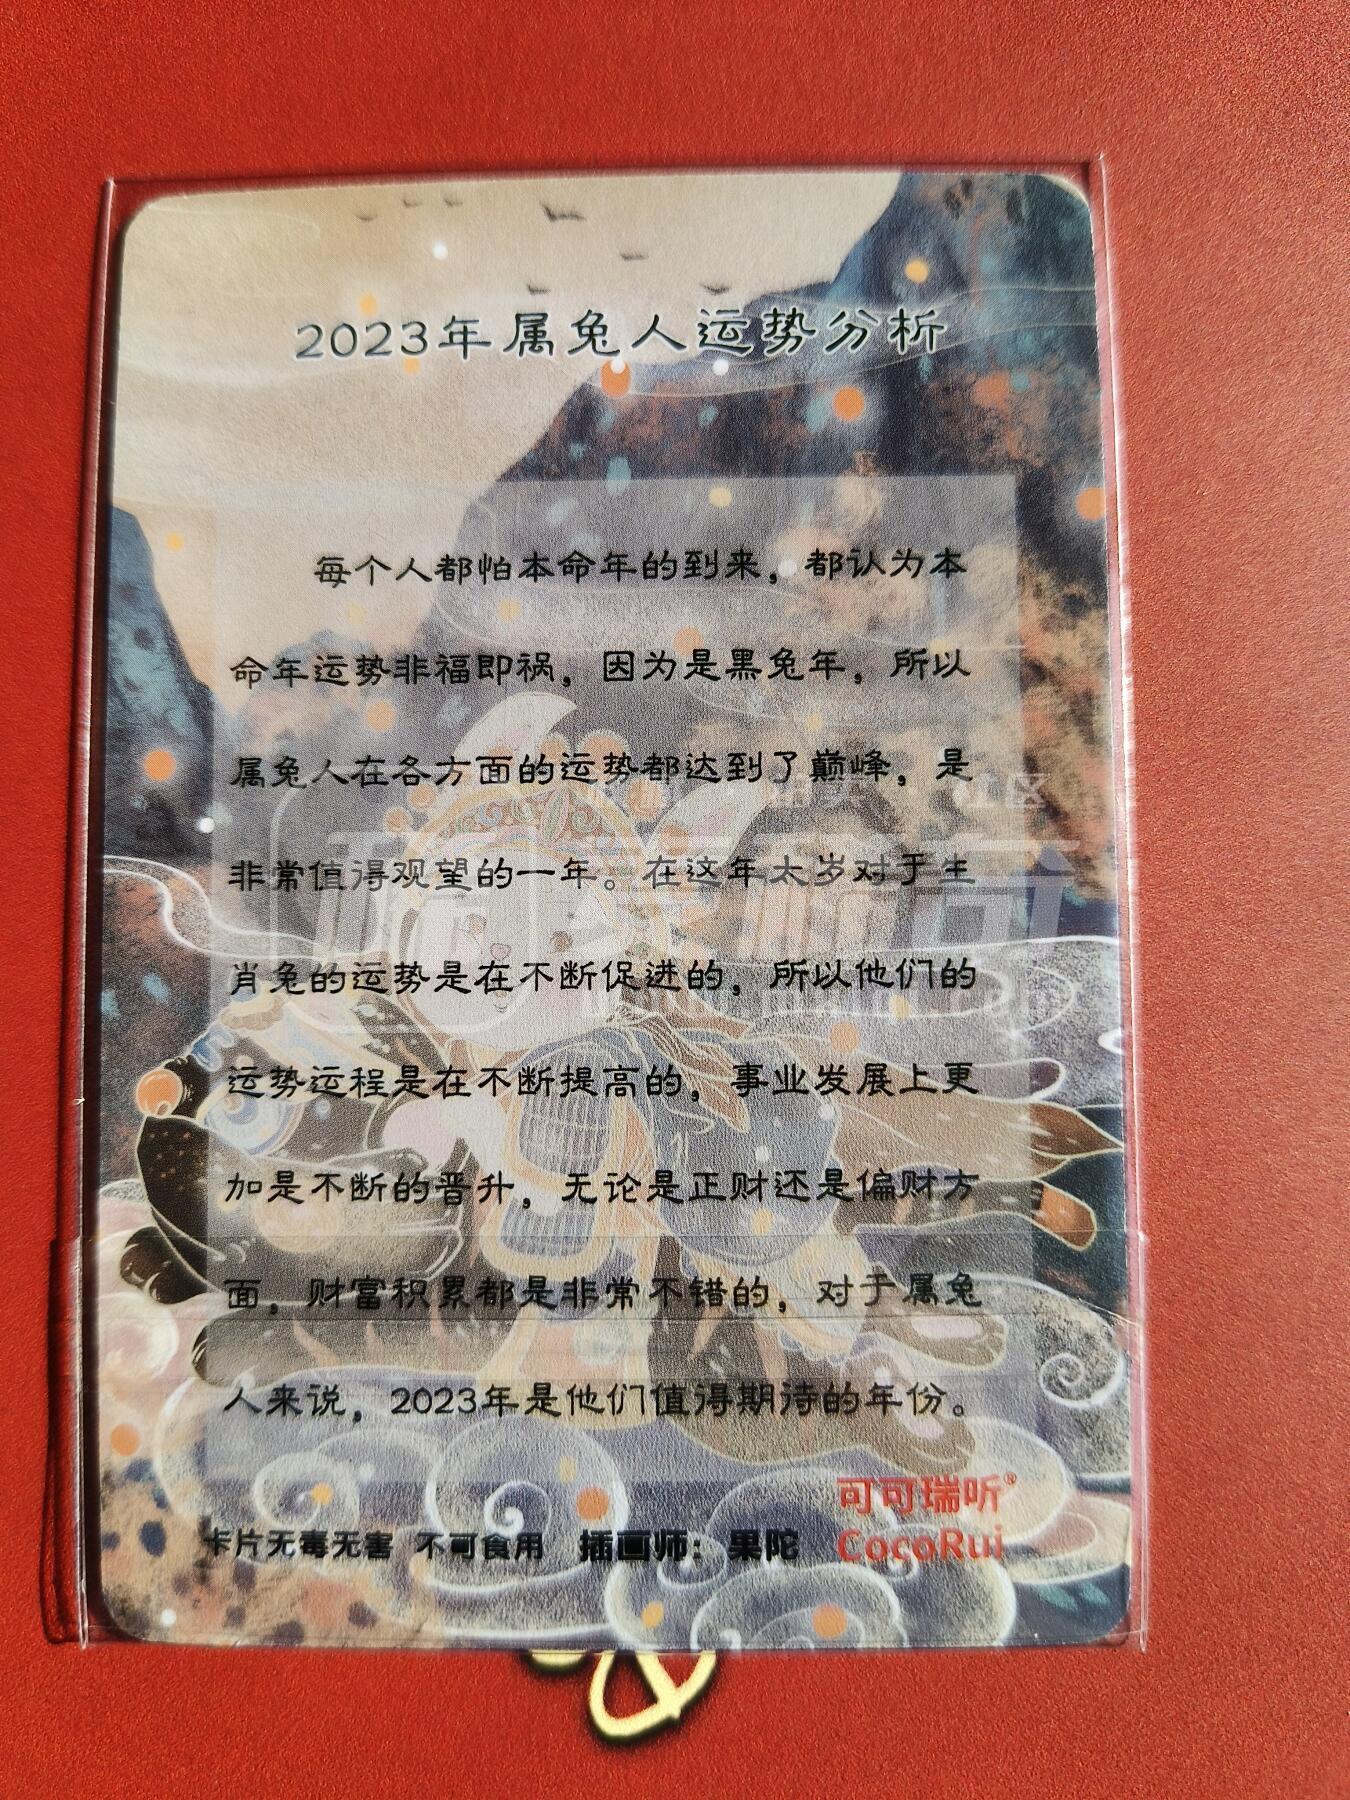 2023年属兔人运势分析
每个人都怕本命年的到来，都认为本
命年运势非福即祸，因为是黑兔年，所以
属兔人在各方面的运势都达到了巅峰，是
非常值得观望的一年。在这年太岁对于生
肖兔的运势是在不断促进的，所以他们的
运势运程是在不断提高的，事业发展上更
加是不断的晋升，无论是正财还是偏财方
面，财富积累都是非常不错的，对于属兔
人来说，2023年是他们值得期待的年份。
可可瑞听®
卡片无毒无害 不可食用 插画师：果陀 CocoRui